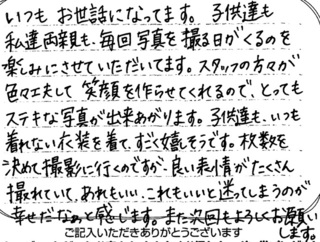 いつも お世話になってます。子供達も
私達両親も、毎回写真を撮る日がくるのを
楽しみにさせていただいてます。スタッフの方々が
色々工夫して 笑顔を作らせてくれるので、とっても
ステキな写真が出来あがります。子供達も、いつも
着れない衣装を着て、すごく嬉しそうです。枚数を
決めて撮影に行くのですが、良い表情がたくさん
撮れていて、あれもいい、これもいいと迷ってしまうのが
幸せだなぁと感じます。また次回もよろしくお願い
します。
ご記入いただきありがとうございます